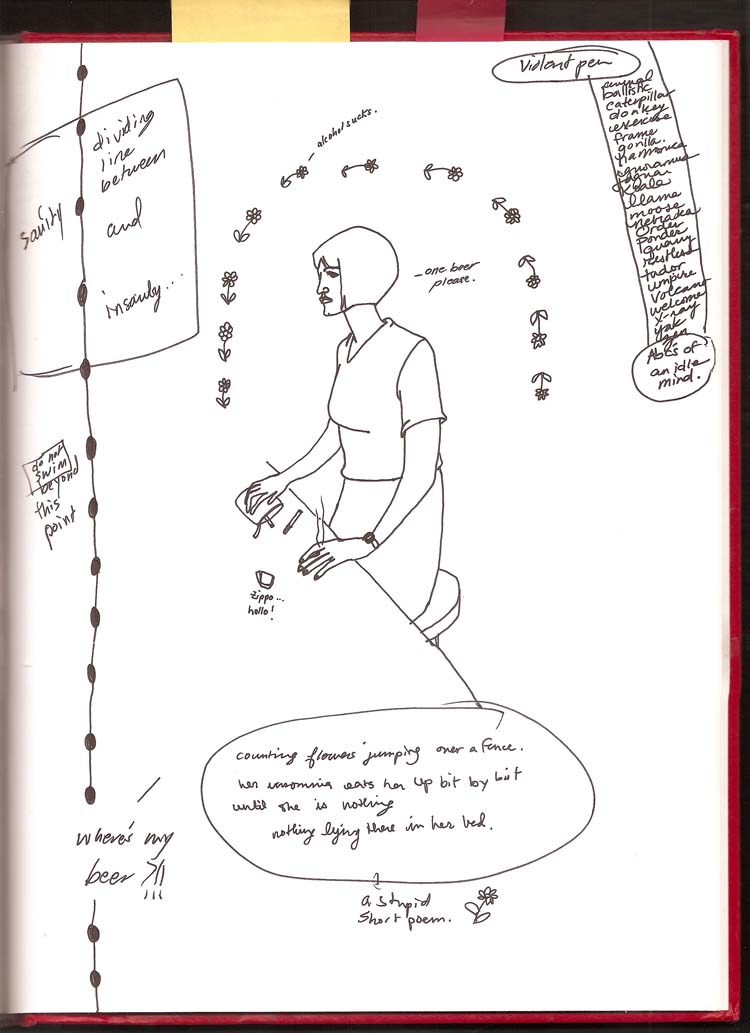 Violent pen
animal
ballistic
caterpillar
donkey
exercise
frame
gorilla.
harmonica
ignoramus
koala
llama
moose
nebraska
order
ponder
quarry
restless
tador
umpire
volcano
welcome
x-ray
yak
zen
Abc's of
an idle
mind.
alcohol sucks.
one beer
please.
dividing
line
between
sanity
and
insanity...
do not
swim
beyond
this
point
zippo...
hello!
counting flowers jumping over a fence.
her insomnia eats her up bit by bit
until she is nothing
nothing lying there in her bed.
a stupid
short poem.
where's my
beer ?!!